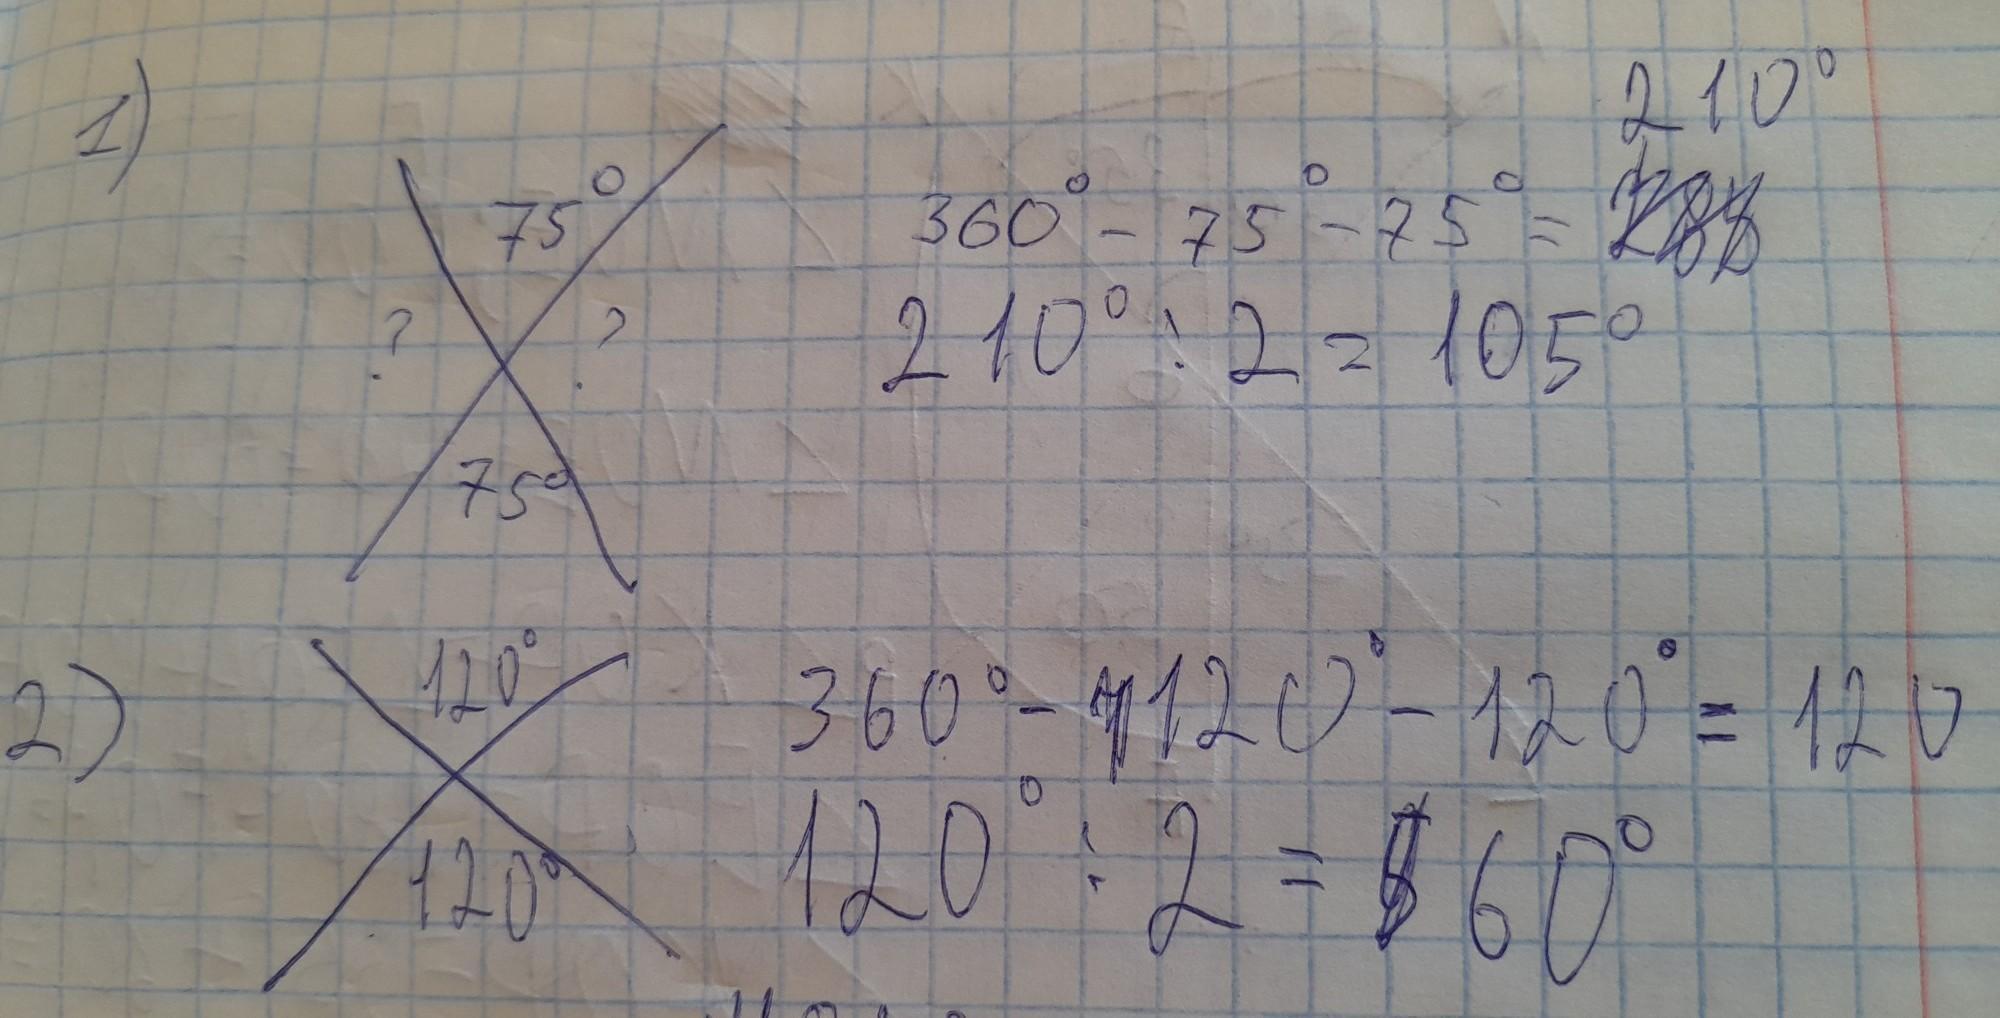 1)
75°
? ?
75°
360° - 75° - 75° = 210°
210° : 2 = 105°
2)
120°
120°
360° - 120° - 120° = 120
120° : 2 = 60°